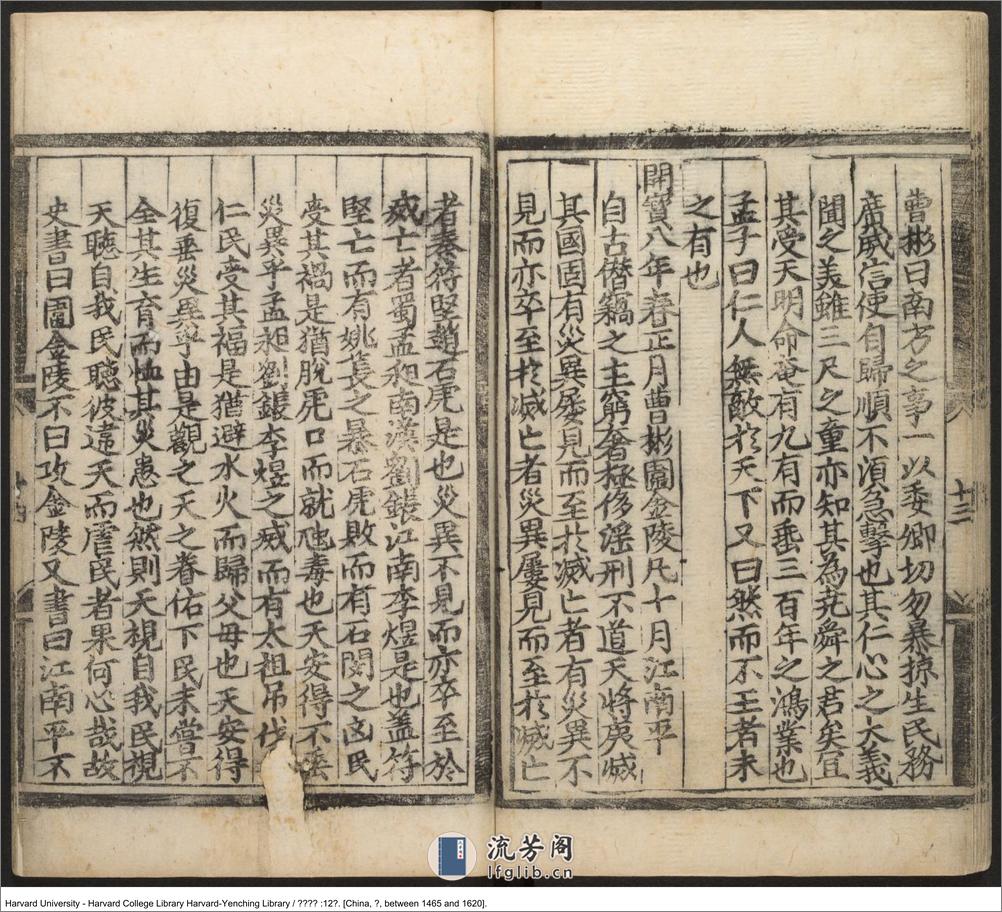 曹彬曰南方之事一以委卿切勿暴掠生民務
廣威信使自歸順不湏急擊也其仁心之大義
聞之美雖三尺之童亦知其為尭舜之君矣宜
其受天明命奄有九有而垂三百年之鴻業也
孟子曰仁人無敵於天下又曰然而不王者未
之有也
開寳八年春正月曹彬圍金陵凡十月江南平
自古僭竊之主窮奢極侈淫刑不道天將夷滅
其國固有災異屢見而至於滅亡者有災異不
見而亦卒至於滅亡者災異屢見而至於滅亡
者秦符堅趙石虎是也災異不見而亦卒至於
滅亡者蜀孟昶南漢劉鋹江南李煜是也盖符
堅亡而有姚萇之暴石虎敗而有石閔之凶民
受其禍是猶脫虎口而就虺毒也天安得不垂
災異乎孟昶劉鋹李煜之滅而有太祖吊伐
仁民受其福是猶避水火而歸父毋也天安得
復垂災異乎由是觀之天之眷佑下民未嘗不
全其生育而恤其災患也然則天視自我民視
天聽自我民聽彼違天而虐民者果何心哉故
史書曰圍金陵不曰攻金陵又書曰江南平不
十三
流芳阁
lfglib.cn
Harvard University - Harvard College Library Harvard-Yenching Library / ???? :12?. [China, ?, between 1465 and 1620].